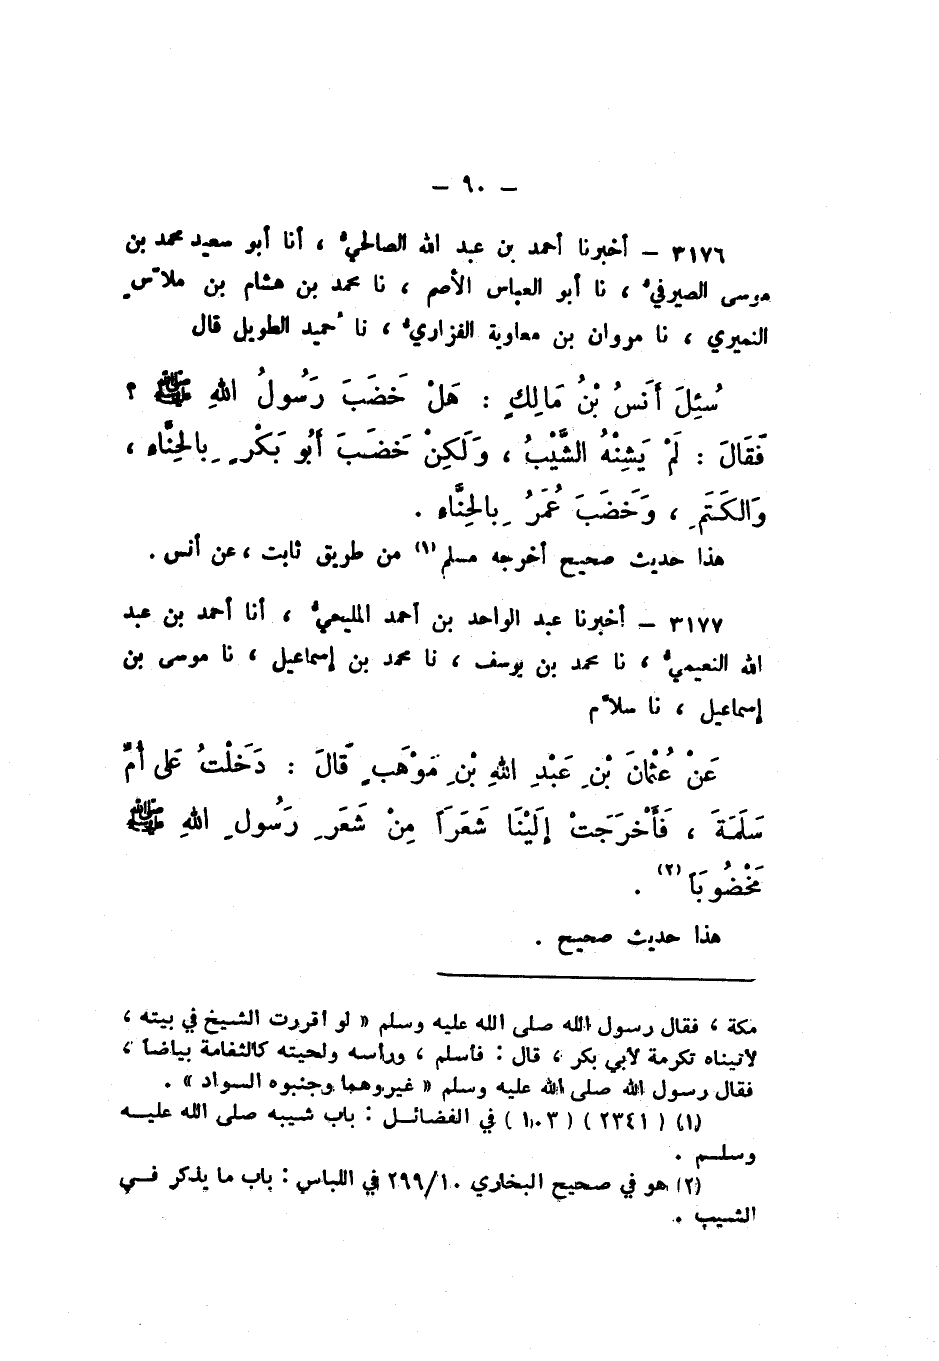 – ٩٠ –
٣١٧٦ – أخبرنا أحمد بن عبد الله الصالحيُّ ، أنا أبو سعيد محمد بن
موسى الصيرفيُّ ، نا أبو العباس الأصم ، نا محمد بن هشام بن ملاَّسٍ
النميري ، نا مروان بن معاوية الفزاريُّ ، نا حُميد الطويل قال
سُئِلَ أَنَسُ بْنُ مَالِكٍ : هَلْ خَضَبَ رَسُولُ اللهِ ﷺ ؟
فَقَالَ : لَمْ يَشِنْهُ الشَّيْبُ ، وَلَكِنْ خَضَبَ أَبُو بَكْرٍ بِالحِنَّاءِ ،
وَالكَتَمِ ، وَخَضَبَ عُمَرُ بِالحِنَّاءِ .
هذا حديث صحيح أخرجه مسلم (١) من طريق ثابت ، عن أنس .
٣١٧٧ – أخبرنا عبد الواحد بن أحمد المليحيُّ ، أنا أحمد بن عبد
الله النعيميُّ ، نا محمد بن يوسف ، نا محمد بن إسماعيل ، نا موسى بن
إسماعيل ، نا سلاَّم
عَنْ عُثْمَانَ بْنِ عَبْدِ اللهِ بْنِ مَوْهَبٍ قَالَ : دَخَلْتُ عَلَى أُمِّ
سَلَمَةَ ، فَأَخْرَجَتْ إِلَيْنَا شَعَرَاً مِنْ شَعَرِ رَسُولِ اللهِ ﷺ
مَخْضُوبَاً (٢) .
هذا حديث صحيح .
مكة ، فقال رسول الله صلى الله عليه وسلم « لو أقررت الشيخ في بيته ،
لأتيناه تكرمة لأبي بكر ، قال : فأسلم ، ورأسه ولحيته كالثغامة بياضاً ،
فقال رسول الله صلى الله عليه وسلم « غيروهما وجنبوه السواد » .
(١) ( ٢٣٤١ ) ( ١٠٣ ) في الفضائل : باب شيبه صلى الله عليه
وسلم .
(٢) هو في صحيح البخاري ٢٩٩/١٠ في اللباس : باب ما يذكر في
الشيب .